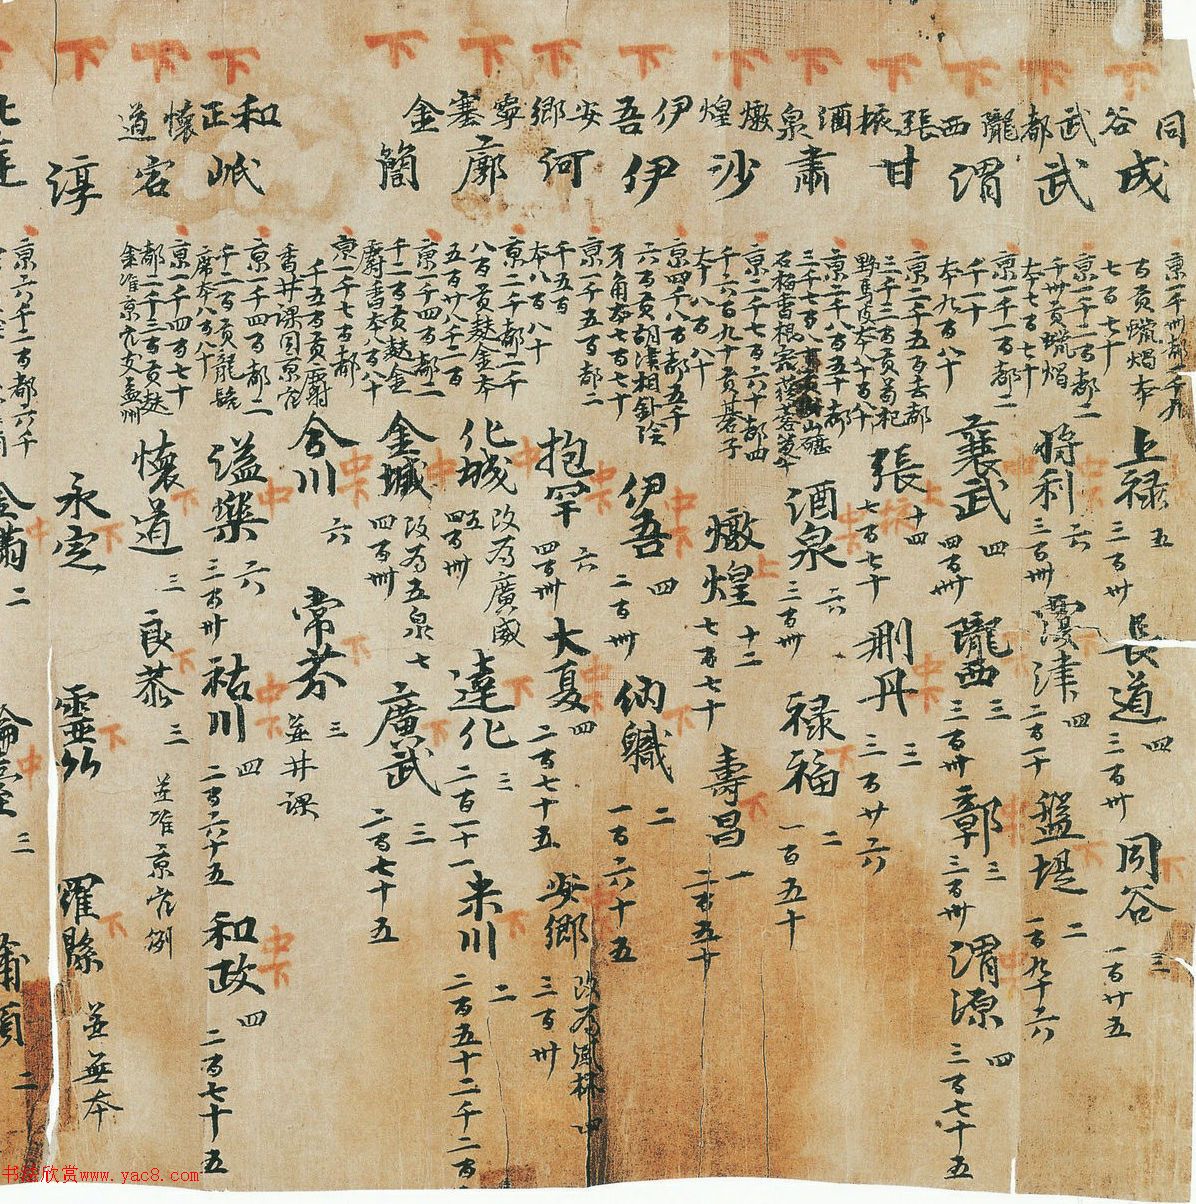 下 同谷 成
京一千卅都一千九
百貢蠟燭本
七百七十
上禄 五 三百卅
長道 四 三百卅 中下
同谷 三 一百廿五 下
下 武都 武
京一千二百都二
千卅貢蠟燭
本七百七十
將利 六 三百卅 中下
覆津 四 二百一十 下
盤堤 二 一百九十六 下
下 隴西 渭
京一千一百都二
千一十
本九百八十
襄武 四 四百卅 中下
隴西 三 三百卅 下
鄣 三 三百卅 中下
渭源 四 三百七十五 中下
下 張掖 甘
京二千五百去都
三千三百貢苟杞
野馬皮本八百八十
張掖 上 十四 七百七十
删丹 三 三百廿六 中下
下 酒泉 肅
京二千八百五十都
三千七百八十
酒泉 六 三百卅 中下
禄福 二 一百五十 下
下 燉煌 沙
京二千七百六十都四
千六百九十貢碁子
本十八百八十
燉煌 上 十二 七百七十
壽昌 下 一 二百五十
下 伊吾 伊
京四千八百都五千
六百貢胡洟桐
牙角本七百七十
伊吾 四 二百卅 中下
納職 二 一百六十五 下
下 安鄉 河
京一千五百都二
千五百
本八百八十
抱罕 六 四百卅 中下
大夏 四 二百七十五 中下
安鄉 改為鳳林 四 三百卅 中下
下 寧塞 廓
京二千都一千
八百貢麩金本
五百廿八千二百
化城 改為廣威 五 四百卅 中下
達化 三 二百一十一 下
米川 二 二百五十二千二百 下
下 金 蘭
京一千四百都二
千二百貢麩金
麝香本八百八十
金城 改為五泉 七 四百卅 中下
廣武 三 二百七十五 下
京一千七百都
千五百貢麝
香井課同京官
合川 六 中下
常芬 三 並井課 下
下 和政 岷
京一千四百都二
千二百貢龍鬚
席本八百八十
溢樂 六 三百卅 中下
祐川 四 二百六十五 中下
和政 四 二百七十五 中下
下 懷道 宕
京一千四百七十
都一千三百貢麩
金准京官交益州
懷道 三 下
良恭 三 並准京官例 下
下 淳
永定 下
靈竹 下
羅縣 並無本 下
京六千一百都六千
金滿 二 中
輪臺 三 中
蒲類 二
书法欣赏www.yac8.com